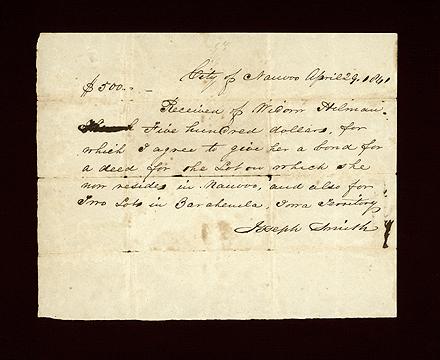 City of Nauvoo April 29. 1841
$500.
Received of Widow Hilman
Five hundred dollars, for
which I agree to give her a bond for
a deed for the Lot on which she
now resides in Nauvoo, and also for
Two Lots in Zarahemla Iowa Territory
Joseph Smith